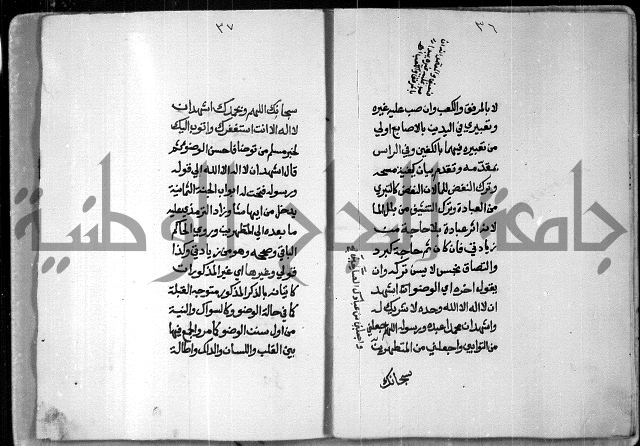 ٣٦
لا بالمرفق والكعب وان صب عليه غيره
وتعبيري في اليدين بالاصابع اولي
من تعبيره فيهما بالكفين وفي الراس
بمقدمه وتقدم بيان كيفية مسحه
وترك النفض للماء لان النفض كالتبري
من العبادة وترك التنشيف من بلل الماء
لانه اثر عبادة بلا حاجة من
زيادتي فان كان ثم حاجة كبرد
والتصاق نجس لا يسن تركه وان
يقول اخره اي الوضوء اشهد
ان لا اله الا الله وحده لا شريك له
واشهد ان محمدا عبده ورسوله اللهم اجعلني
من التوابين واجعلني من المتطهرين
سبحانك
واجعلني من عبادك الصالحين
٣٧
سبحانك اللهم وبحمدك اشهد ان
لا اله الا انت استغفرك واتوب اليك
لخبر مسلم من توضا فاحسن الوضوء ثم
قال اشهد ان لا اله الا الله الي قوله
ورسوله فتحت له ابواب الجنة الثمانية
يدخل من ايها شاء زاد الترمذي عليه
ما بعده الي المتطهرين وروي الحاكم
الباقي وصححه وهو من زيادتي وكذا
قولي وغيرها اي غير المذكورات
كاتيانه بالذكر المذكور متوجه القبلة
كما في حالة الوضوء وكالسواك والنية
من اول سنن الوضوء كما مر والجمع فيها
بين القلب واللسان والدلك واطالة
جامعة الحاج الوطنية